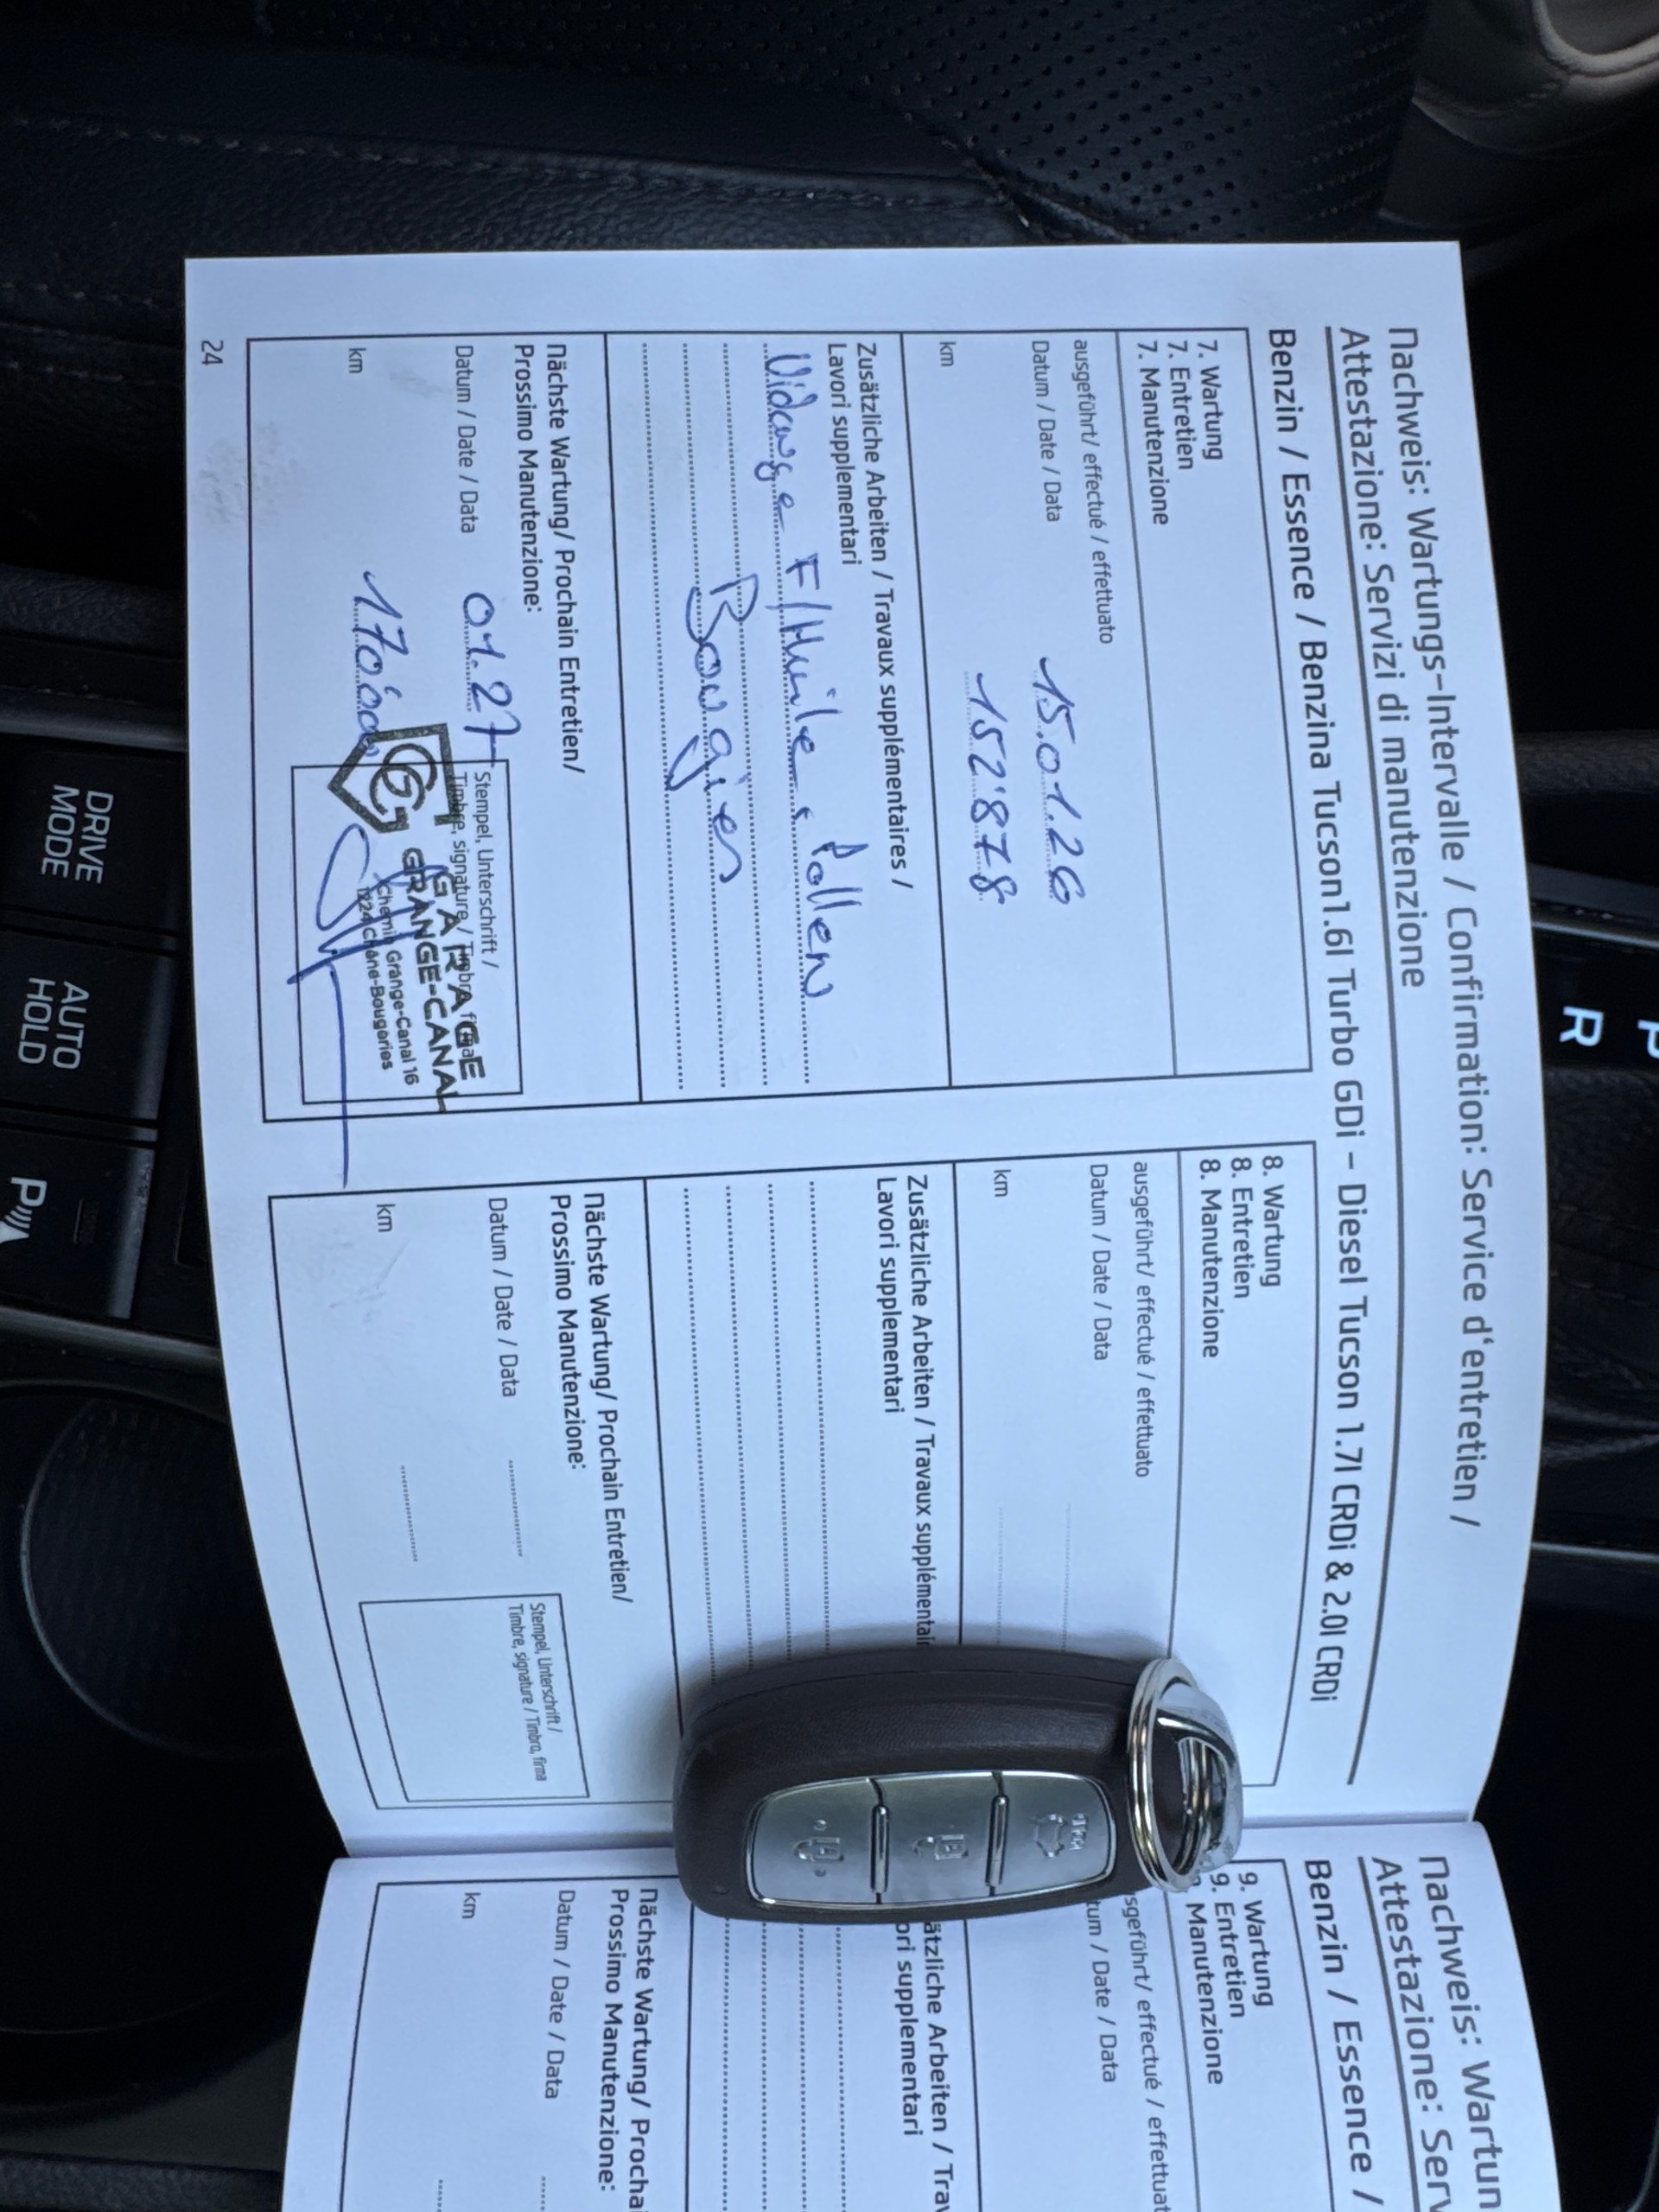 Nachweis: Wartungs-Intervalle / Confirmation: Service d'entretien /
Attestazione: Servizi di manutenzione
Benzin / Essence / Benzina Tucson1.6l Turbo GDi – Diesel Tucson 1.7l CRDi & 2.0l CRDi
7. Wartung
7. Entretien
7. Manutenzione
ausgeführt/ effectué / effettuato
Datum / Date / Data 15.01.26
km 152'878
Zusätzliche Arbeiten / Travaux supplémentaires /
Lavori supplementari
Vidange F/Huile + Pollen
Bougies
Nächste Wartung/ Prochain Entretien/
Prossimo Manutenzione:
Datum / Date / Data 01.27
km 170'000
Stempel, Unterschrift /
Timbre, signature / Timbro, firma
GARAGE
GRANGE-CANAL
Chemin Grange-Canal 16
1224 Chêne-Bougeries
24
8. Wartung
8. Entretien
8. Manutenzione
ausgeführt/ effectué / effettuato
Datum / Date / Data
km
Zusätzliche Arbeiten / Travaux supplémentai
Lavori supplementari
Nächste Wartung/ Prochain Entretien/
Prossimo Manutenzione:
Datum / Date / Data
km
Stempel, Unterschrift /
Timbre, signature / Timbro, firma
Nachweis: Wartun
Attestazione: Ser
Benzin / Essence /
9. Wartung
9. Entretien
Manutenzione
sgeführt/ effectué / effettuat
tum / Date / Data
ätzliche Arbeiten / Trav
ori supplementari
Nächste Wartung/ Procha
Prossimo Manutenzione:
Datum / Date / Data
km
DRIVE
MODE
AUTO
HOLD
P
P
R